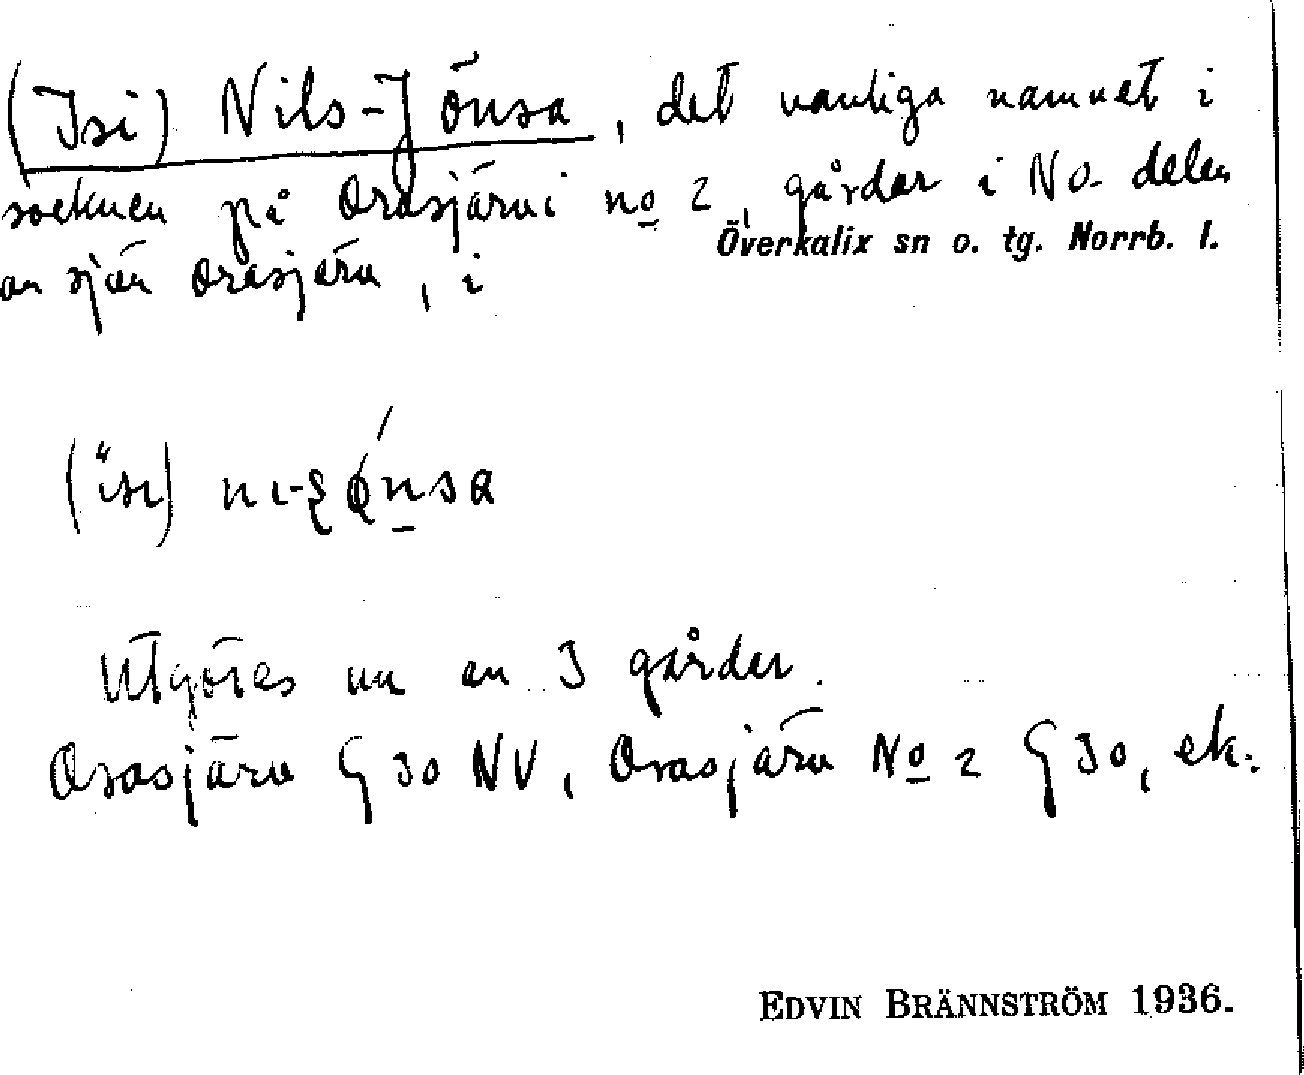 (Isi) Nils-Jönsa, det vanliga namnet i
socknen på Orasjärvi no 2, gårdar i NO. delen
av sjön Orasjärv, i
Överkalix sn o. tg. Norrb. l.
Utgöres nu av 3 gårdar.
Orasjärv G 30 NV, Orasjärv No 2 G 30, ek.
EDVIN BRÄNNSTRÖM 1936.